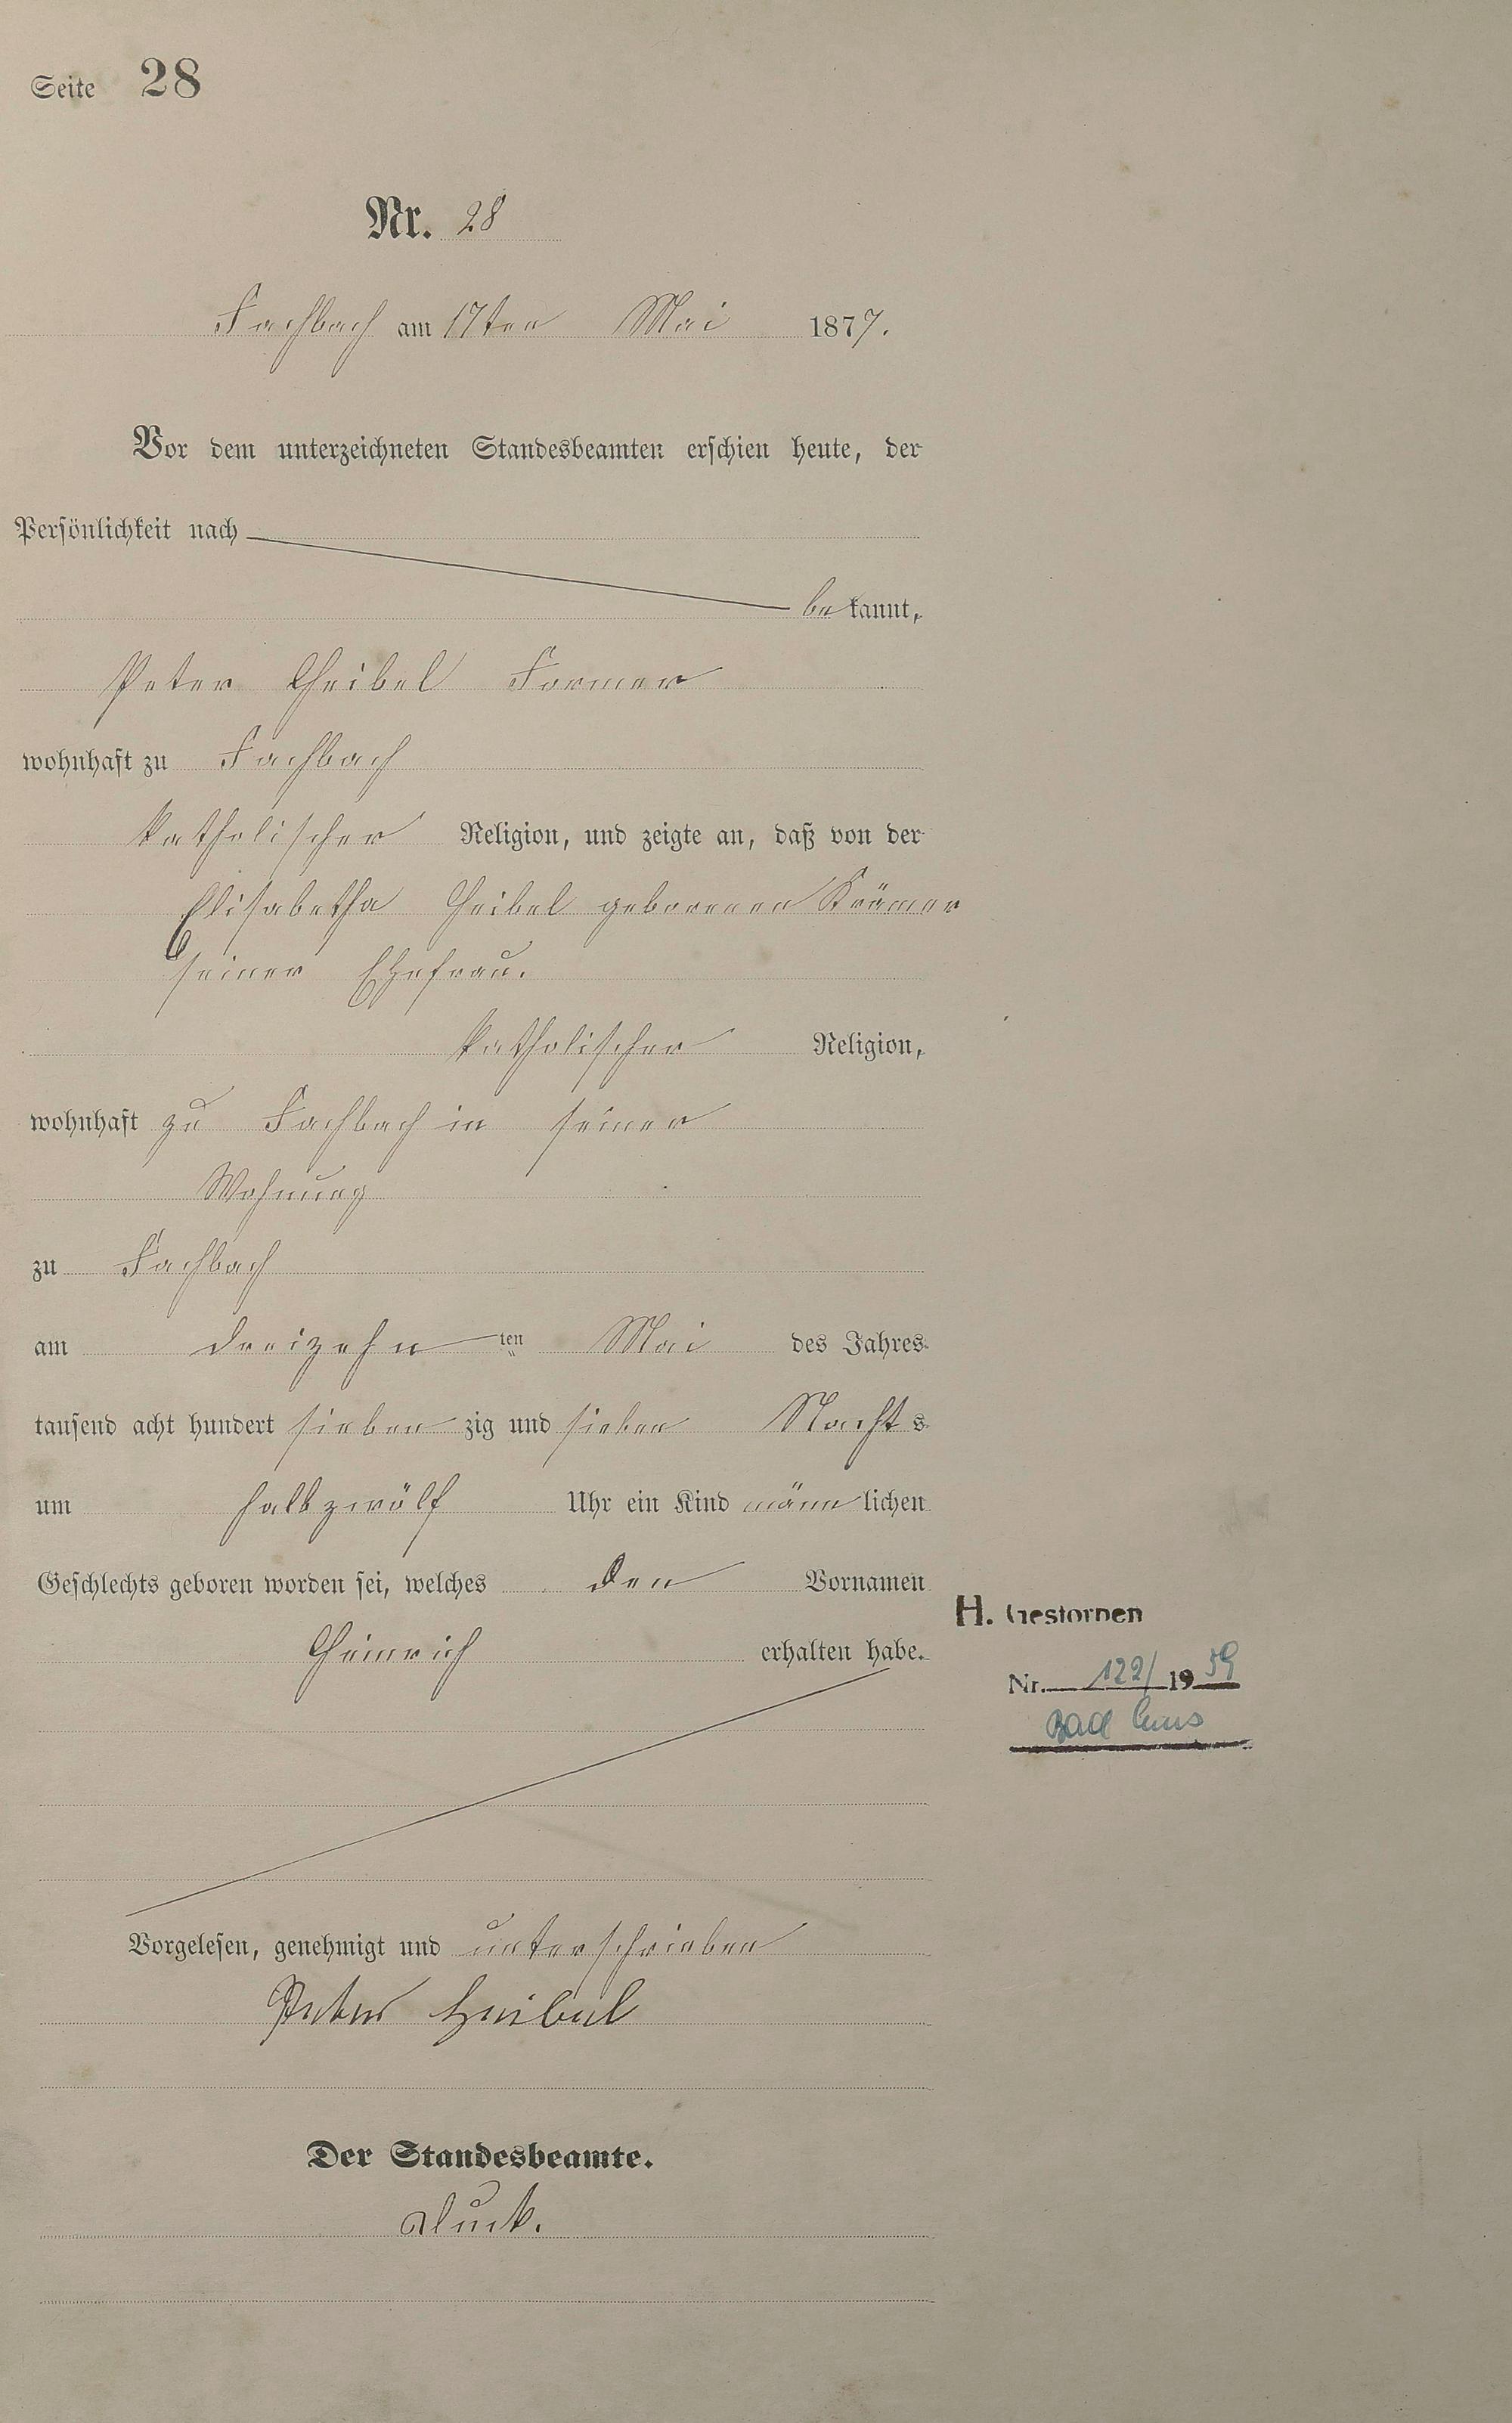 Seite 28
Nr. 28
Fachbach am 17ten Mai 1877.
Vor dem unterzeichneten Standesbeamten erschien heute, der
Persönlichkeit nach
bekannt,
Peter Heibel Former
wohnhaft zu Fachbach
katholischer Religion, und zeigte an, daß von der
Elisabetha Heibel geborenen Krämer
seiner Ehefrau.
katholischer Religion,
wohnhaft zu Fachbach in seiner
Wohnung
zu Fachbach
am dreizehnten Mai des Jahres
tausend acht hundert siebenzig und sieben Nachts
um halb zwölf Uhr ein Kind männlichen
Geschlechts geboren worden sei, welches den Vornamen
Heinrich erhalten habe.
H. Gestorben
Nr. 122/1959
Bad Ems
Vorgelesen, genehmigt und unterschrieben
Peter Heibel
Der Standesbeamte.